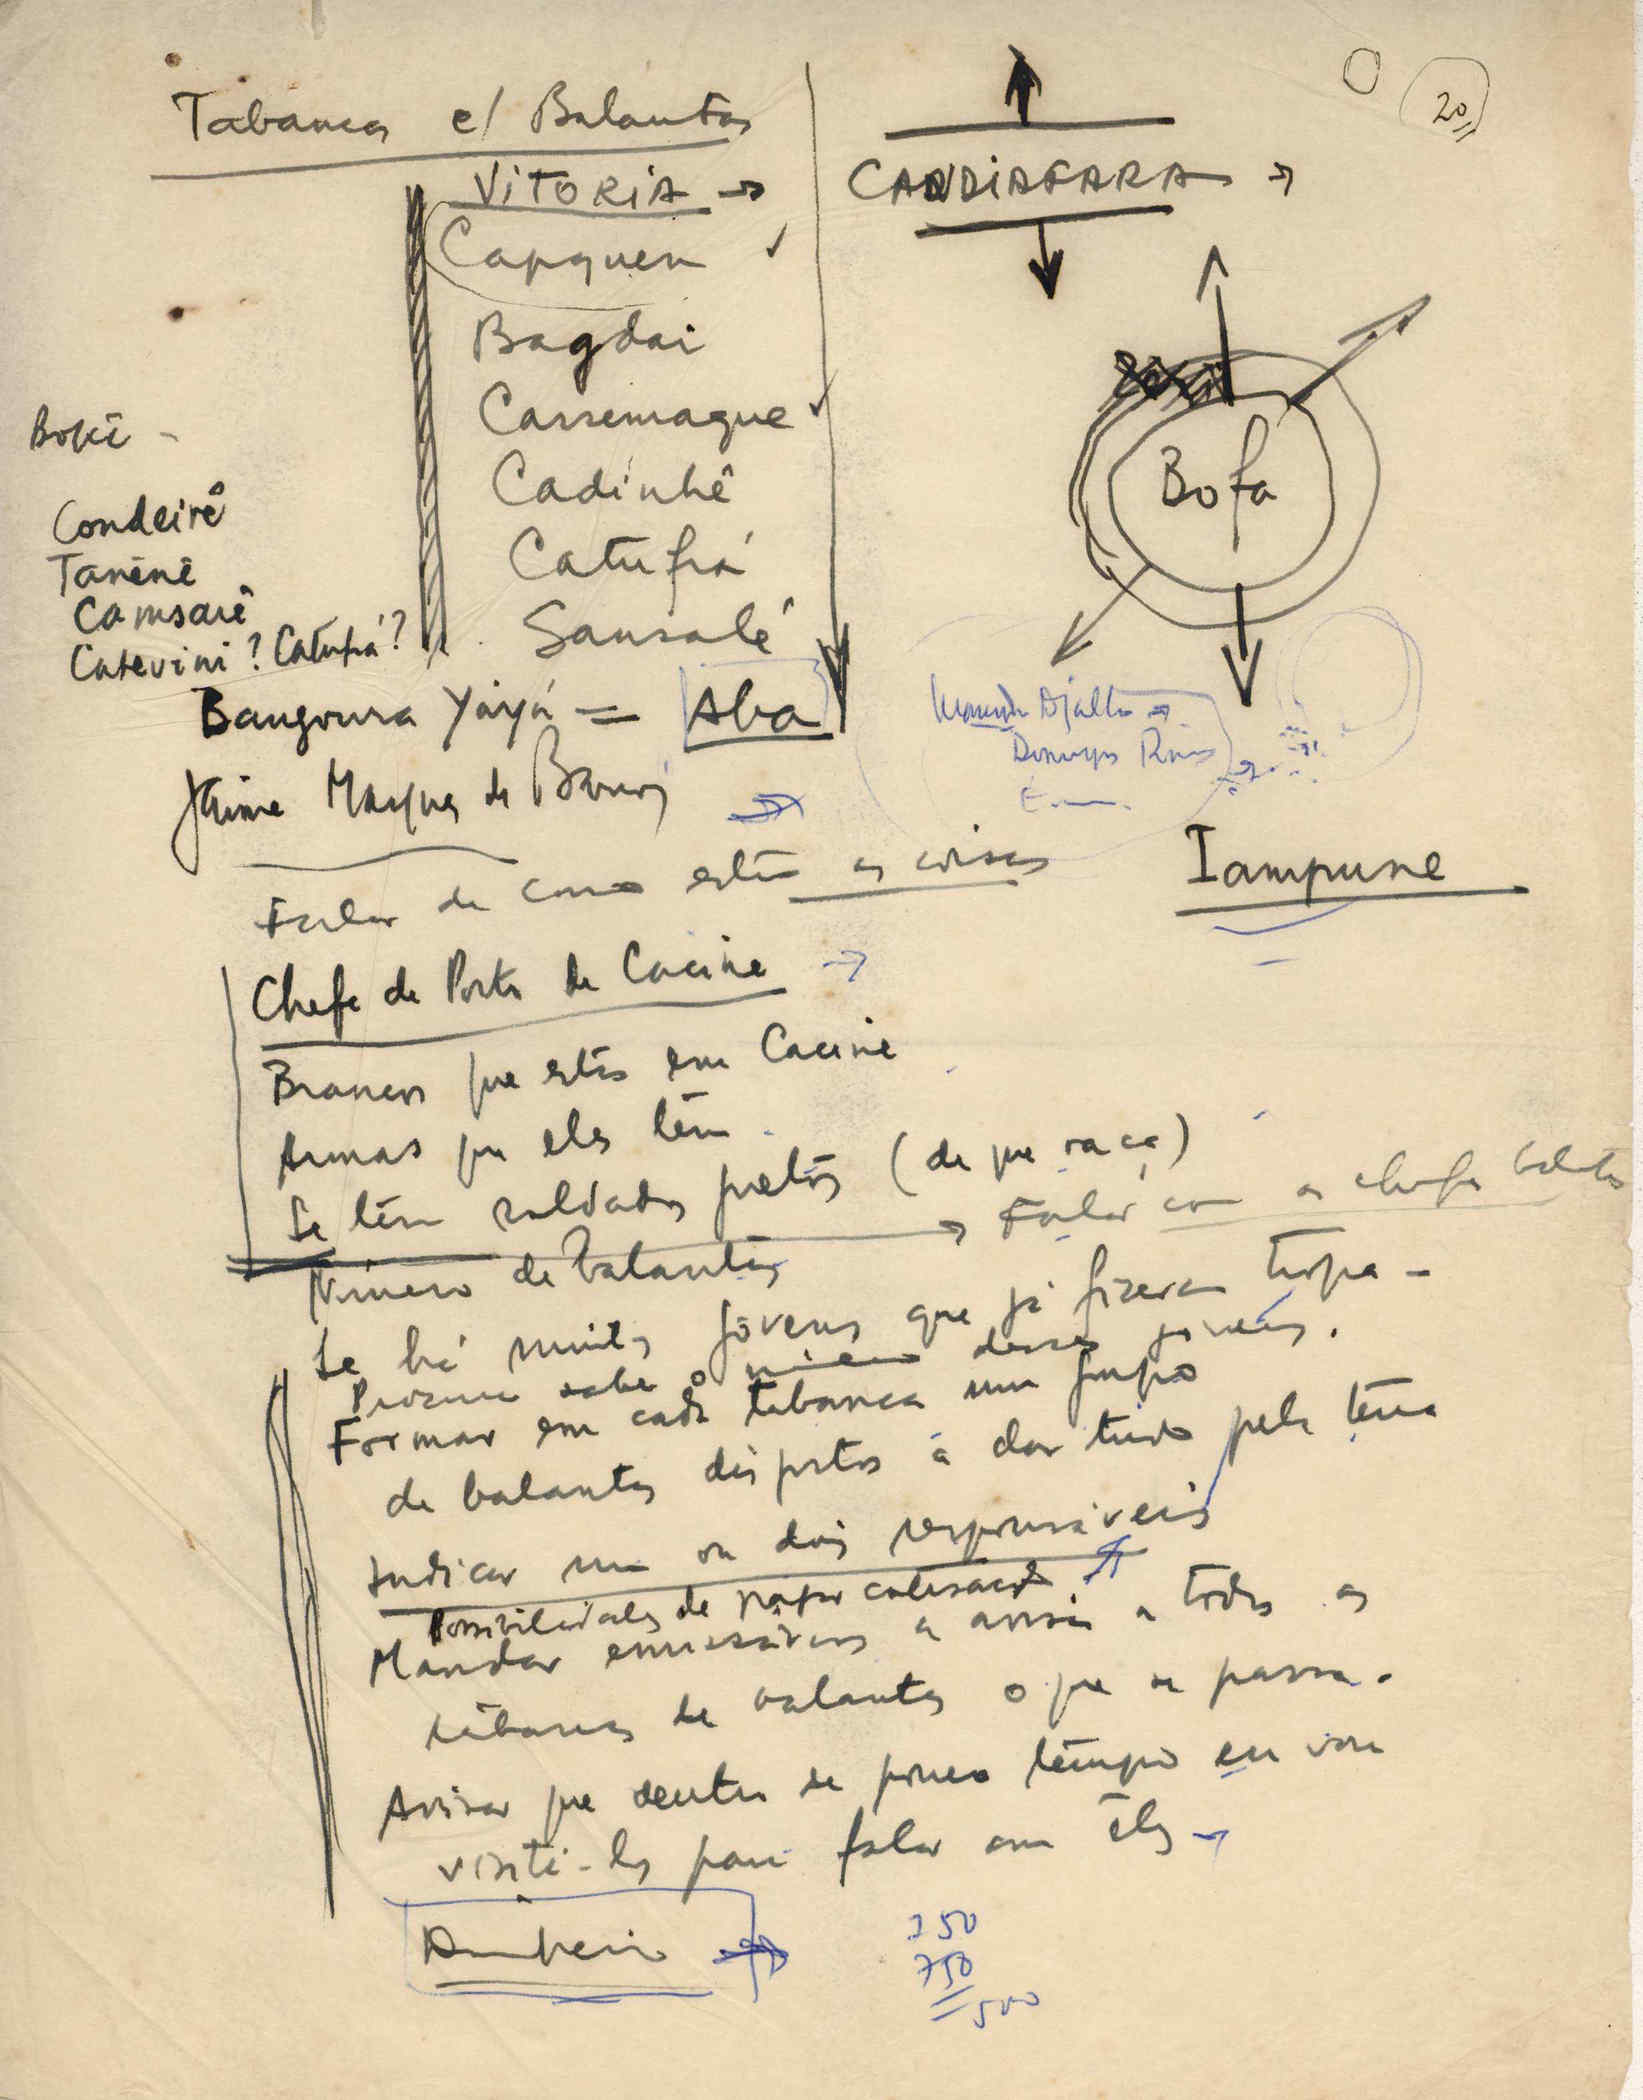 20
Tabancas c/ Balantas
VITORIA →
Capquen ✓
Bagdai
Cassemaque ✓
Cadinhê
Catufiá
Sansalé
CANDIAFARA →
Bofa
Boké -
Condeirê
Tanênê
Camsarê
Catevini? Catufiá?
Bangoura Yáyá = Aba
Jaime Marques de
Djalló →
Domingos
Iampune
Falar de como estão as coisas
Chefe de Posto de Cacine →
Brancos que estão em Cacine
Armas que eles têm.
Se têm soldados pretos (de que raça)
Número de balantas → Falar com os chefes balantas
Se há muitos jóvens que já fizeram tropa -
Procurar saber o número desses jóvens.
Formar em cada tabanca um grupo
de balantas dispostos a dar tudo pela terra
Indicar um ou dois responsáveis
Possibilidades de pagar cotisação
Mandar emissários a avisar a todas as
tabancas de balantas o que se passa.
Avisar que dentro de pouco tempo eu vou
visitá-los para falar com êles →
Dinheiro →
750
500